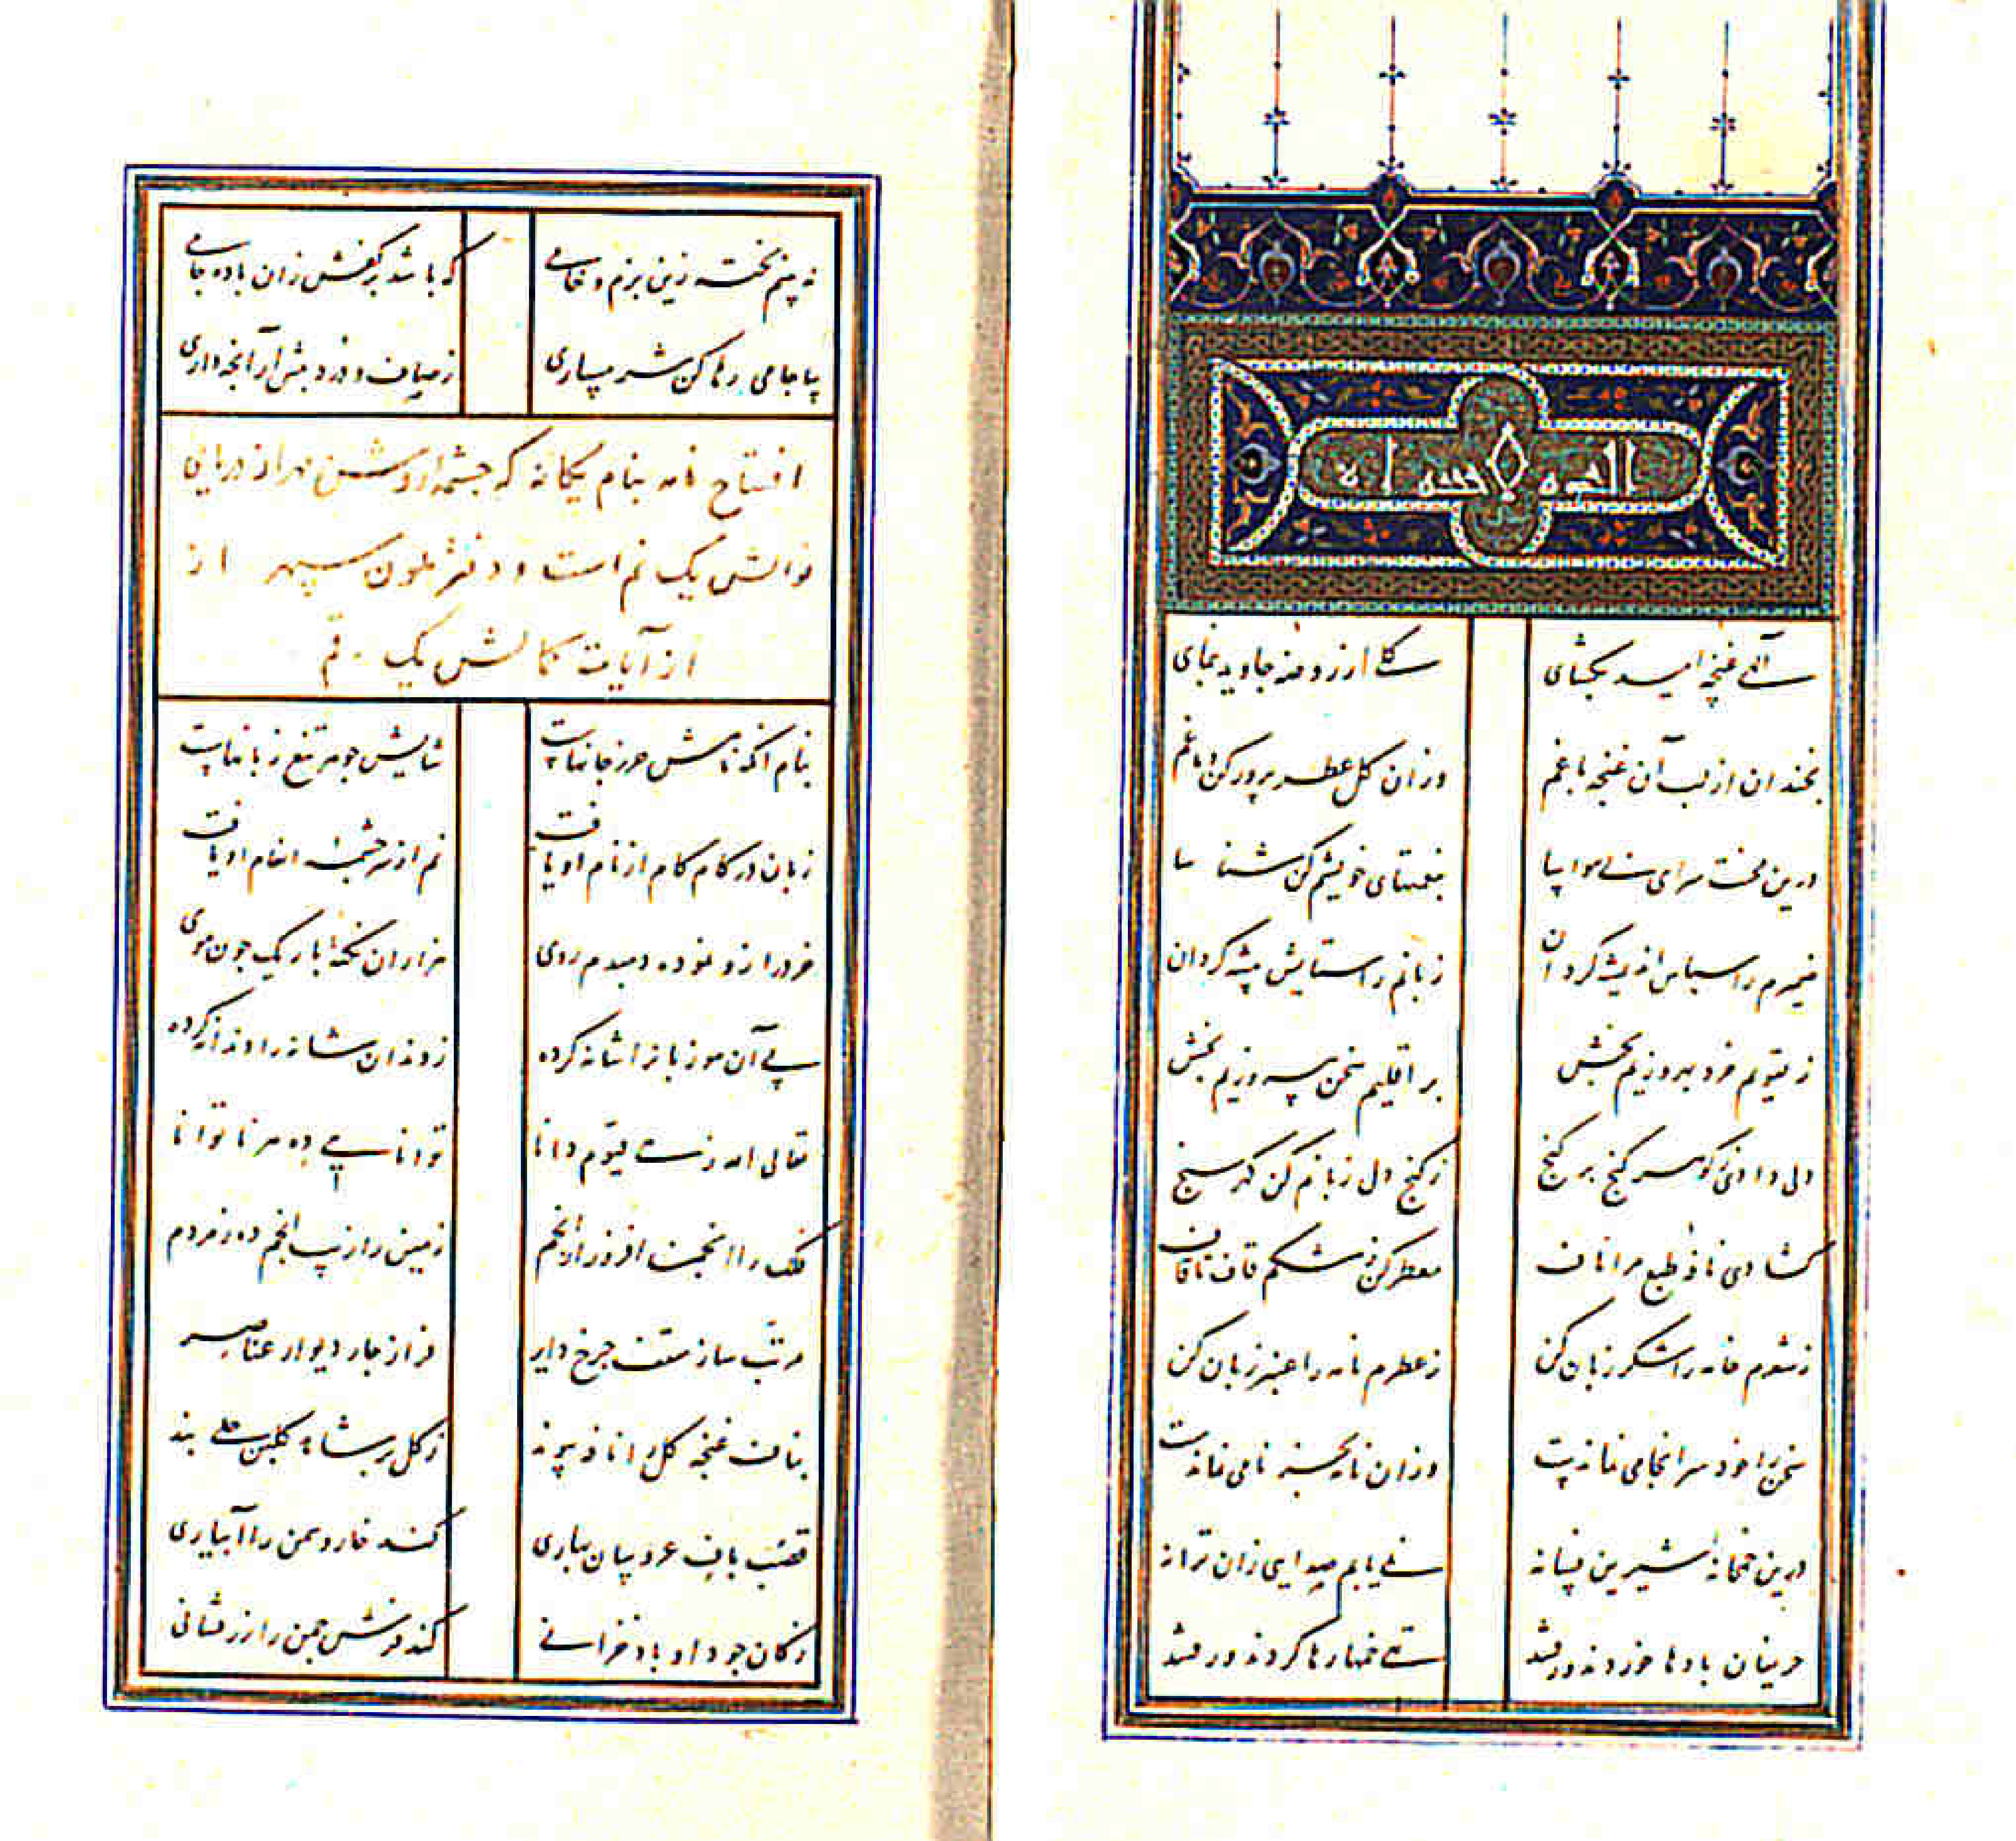 الحمد لله
الهی غنچه امید بگشای گلی از روضه جاوید بنمای
بخندان از لب آن غنچه باغم وزان گل عطرپرور کن دماغم
درین محنت سرای بی مواسا بنعمتهای خویشم کن شناسا
ضمیرم را سپاس اندیشه گردان زبانم را ستایش پیشه گردان
ز تقویم خرد بهروزیم بخش بر اقلیم سخن پیروزیم بخش
دلی دادی ز گوهر گنج بر گنج ز گنج دل زبانم کن گهرسنج
گشادی نافه طبع مرا ناف معطر کن ز مشکم قاف تا قاف
ز شعرم خامه را شکرزبان کن ز عطرم نامه را عنبرزبان کن
سخن را خود سرانجامی نماندست وزان نامه بجز نامی نماندست
درین خمخانه شیرین فسانه نمی یابم صدایی زان ترانه
حریفان بادها خوردند و رفتند تهی خمها رها کردند و رفتند
نه بینم پخته زین بزم و خامی که باشد بر کفش زان باده جامی
بیا جامی رها کن شرمساری ز صاف و درد پیش آر آنچه داری
افتتاح نامه بنام یگانه که چشمه از دریای
نوالش یک نم است و دفتر ملون سپهر از
از آیات کمالش یک رقم
بنام آنکه نامش حرز جانهاست ثنایش جوهر تیغ زبانهاست
زبان در کام کام از نام او یافت نم از سرچشمه انعام او یافت
خرد را زو نموده دمبدم روی هزاران نکته باریک چون موی
پی آن مو زبانرا شانه کرده ز دندان شانه را دندانه کرده
تعالی الله زهی قیوم دانا توانایی ده هر ناتوانا
فلک را انجمن افروز از انجم زمین را زیب انجم ده ز مردم
مرتب ساز سقف چرخ دایر فراز چار دیوار عناصر
بناف غنچه گل را نافه پیوند ز گل بر شاهد گلبن حلی بند
قصب باف عروسان بهاری کند خار و سمن را آبیاری
ز کان جود او باد خزانی کند فرش چمن را زرفشانی